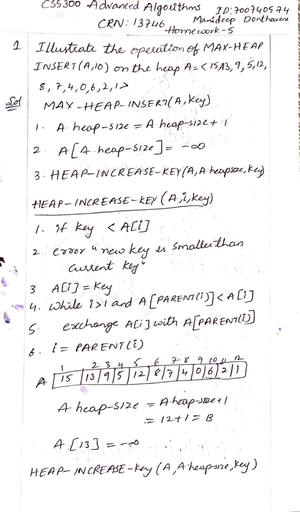 CS5300 Advanced Algorithms ID:700740574
CRN: 13746 Manideep Donthaveni
Homework-5
1 Illustrate the operation of MAX-HEAP
INSERT(A,10) on the heap A=<15,13,9,5,12,
8,7,4,0,6,2,1>
Sol MAX-HEAP-INSERT(A,Key)
1. A heap-size = A heap-size + 1
2 A[A heap-size] = -∞
3. HEAP-INCREASE-KEY(A,A heapsize,key)
HEAP-INCREASE-KEY (A,i,key)
1. if key < A[i]
2 error "new key is smaller than
current key"
3 A[i] = key
4. while i>1 and A[PARENT(i)] < A[i]
5. exchange A[i] with A[PARENT(i)]
6. i = PARENT(i)
1 2 3 4 5 6 7 8 9 10 11 12
A 15 13 9 5 12 8 7 4 0 6 2 1
A heap-size = A heap-size+1
= 12+1 = 13
A[13] = -∞
HEAP-INCREASE-key (A, A heapsize, key)